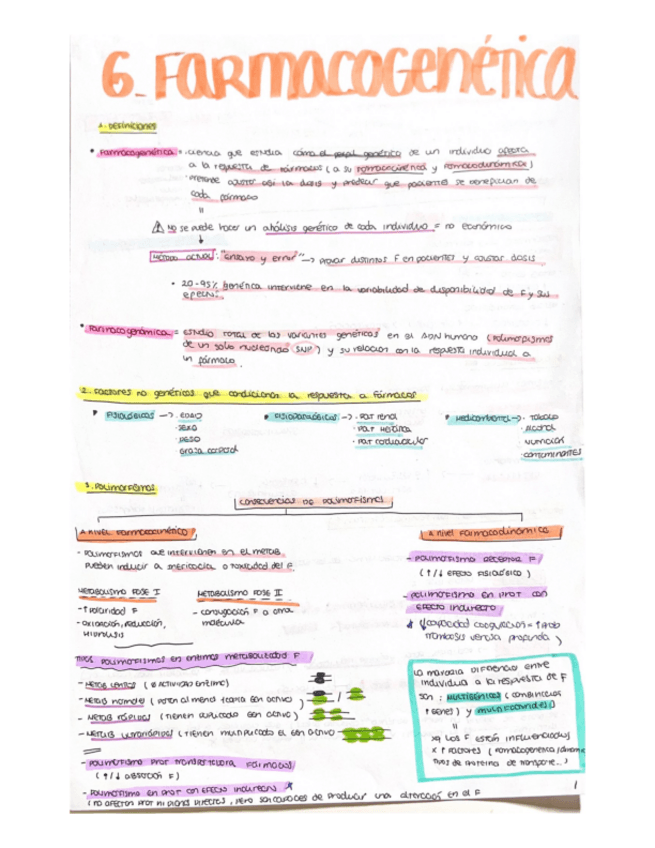 6. FARMACOGENÉTICA
1. DEFINICIONES
• Farmacogenética = ciencia que estudia cómo el perfil genético de un individuo afecta
a la respuesta de fármacos (a su farmacocinética y farmacodinámica)
• pretende ajustar así la dosis y predecir que pacientes se benefician de
cada fármaco
"
⚠ No se puede hacer un análisis genético de cada individuo = no económico
↓
Método actual: "ensayo y error" → probar distintos F en pacientes y ajustar dosis
• 20-95% genética interviene en la variabilidad de disponibilidad de F y sus
efectos.
• Farmacogenómica = estudio total de las variantes genéticas en el ADN humano (polimorfismos
de un solo nucleótido SNP) y su relación con la respuesta individual a
un fármaco.
2. Factores no genéticos que condicionan la respuesta a fármacos
Fisiológicos → · edad
· sexo
· peso
· grasa corporal
Fisiopatológicos → · pat renal
· pat hepática
· pat cardiovascular
Medioambiental → · tabaco
· alcohol
· contaminantes
3. Polimorfismos
consecuencias de polimorfismos
A nivel farmacocinético
- polimorfismos que intervienen en el metab.
pueden inducir a ineficacia o toxicidad del F.
Metabolismo fase I
- ↑ polaridad F
- oxidación, reducción,
hidrólisis
Metabolismo fase II
- conjugación F a otra
molécula
Tipos polimorfismos en enzimas metabolizadoras F
- Metab lentos (∅ actividad enzima)
- Metab normales (poten al menos 1 copia gen activo) /
- Metab rápidos (tienen duplicado gen activo)
- Metab ultrarrápidos (tienen multiplicado el gen activo)
- polimorfismo prot transportadora fármacos
(↑/↓ absorción F)
- polimorfismo en prot con efecto indirecto *
(no afectan prot ni dianas directas, pero son capaces de producir una alteración en el F
A nivel farmacodinámica
- polimorfismo receptor F
(↑/↓ efecto fisiológico)
- polimorfismo en prot con
efecto indirecto
* (↓ capacidad coagulación = ↑ prob
trombosis venosa profunda)
La mayoría diferencia entre
individual a la respuesta de F
son: multigénicos (combinación
↑ genes) y multifactoriales
"
xq los F están influenciados
x ↑ factores (farmacogenética/dinam
tipos de proteína de transporte...)
1